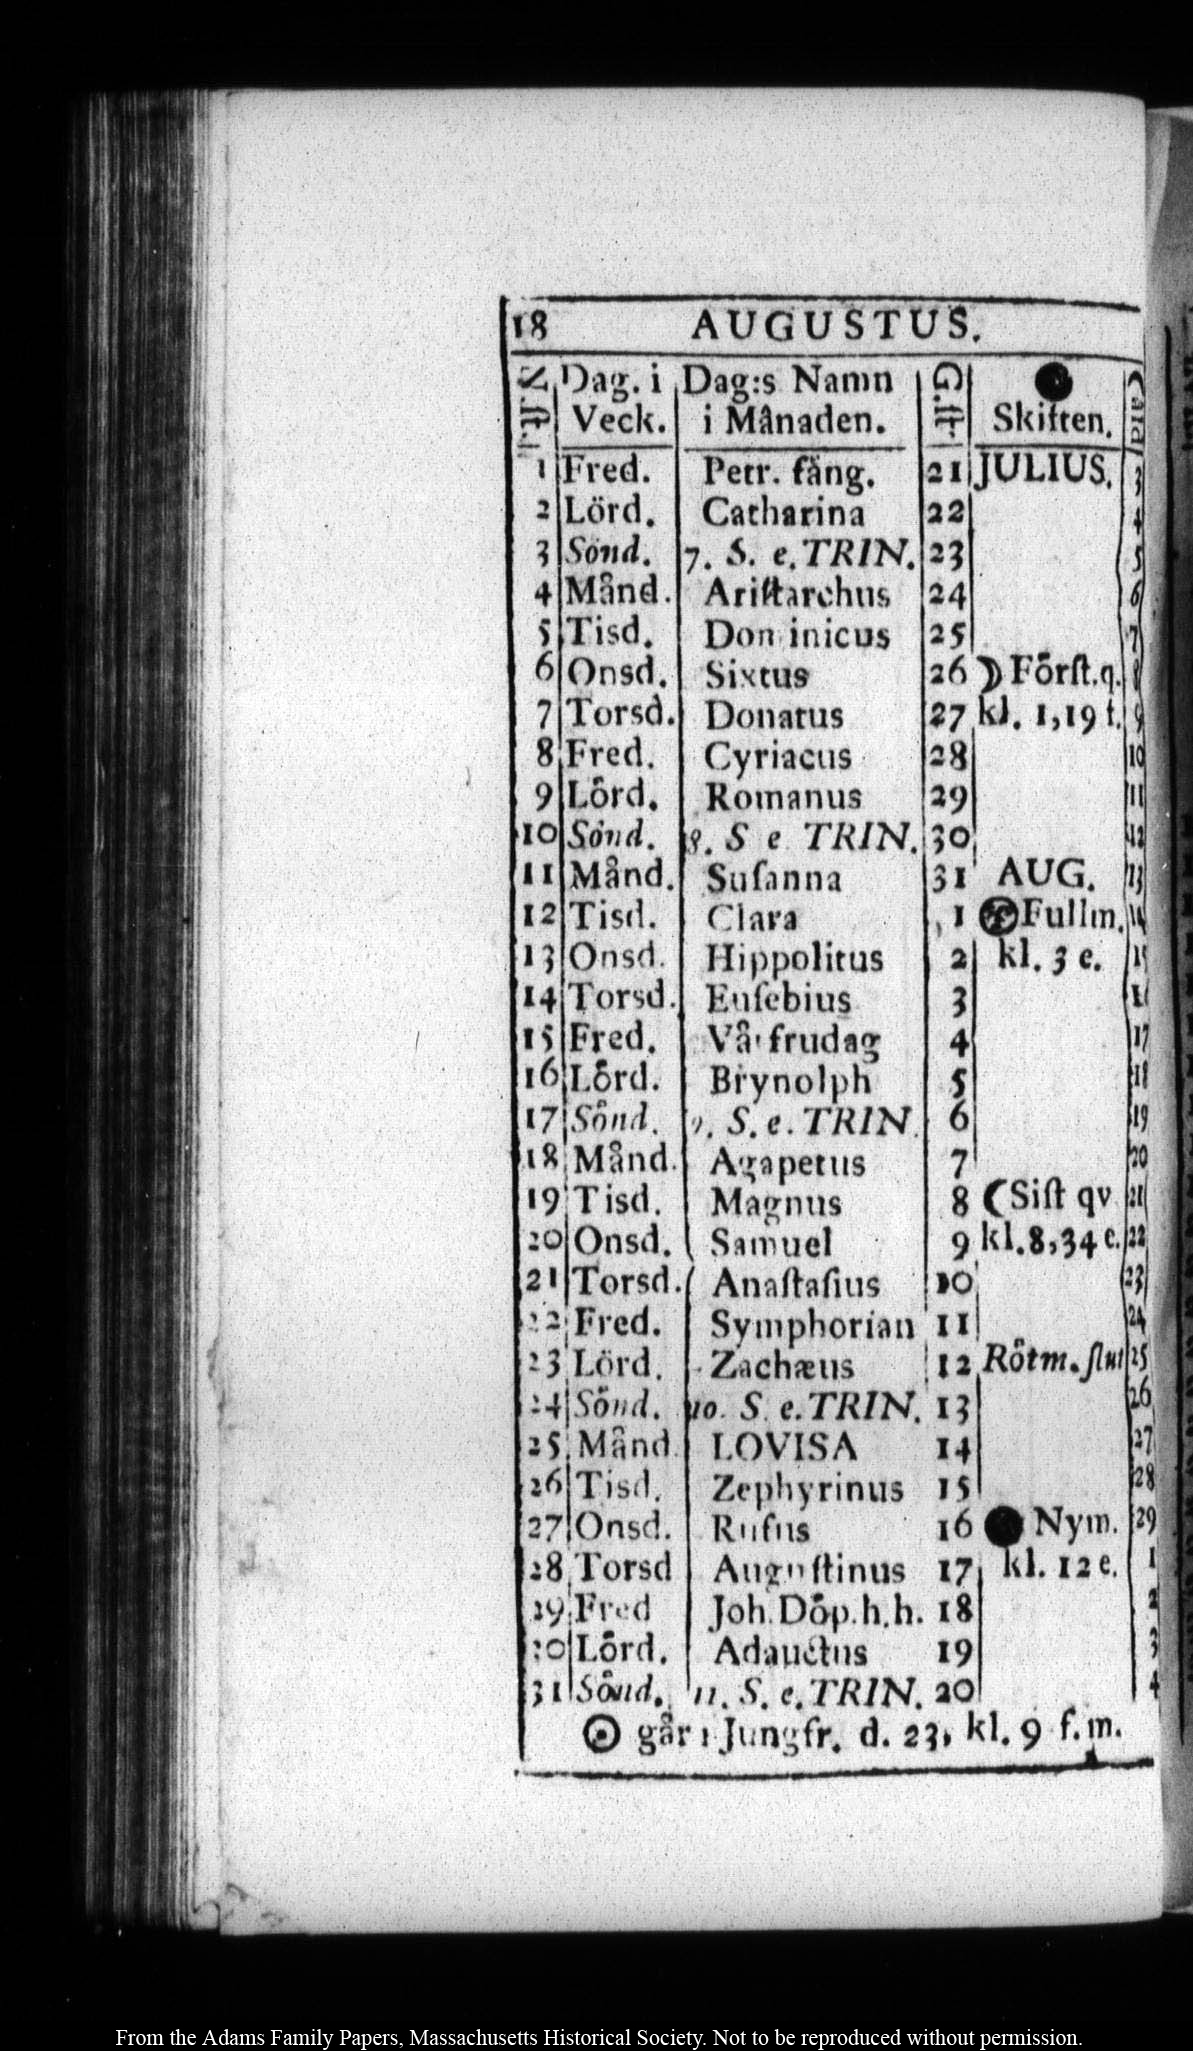 18 AUGUSTUS.
N.ſt. Dag. i Dag:s Namn G.ſt.
Veck. i Månaden. Skiften.
1 Fred. Petr. fäng. 21 JULIUS. 3
2 Lörd. Catharina 22 4
3 Sönd. 7. S. e. TRIN. 23 5
4 Månd. Ariſtarchus 24 6
5 Tisd. Dominicus 25 7
6 Onsd. Sixtus 26 ☽ Förſt.q. 8
7 Torsd. Donatus 27 kl. 1,19 f. 9
8 Fred. Cyriacus 28 10
9 Lörd. Romanus 29 11
10 Sönd. 8. S e TRIN. 30 12
11 Månd. Suſanna 31 AUG. 13
12 Tisd. Clara 1 Fullm. 14
13 Onsd. Hippolitus 2 kl. 3 e. 15
14 Torsd. Euſebius 3 16
15 Fred. Vårfrudag 4 17
16 Lörd. Brynolph 5 18
17 Sönd. 9. S. e. TRIN. 6 19
18 Månd. Agapetus 7 20
19 Tisd. Magnus 8 ☾ Siſt qv 21
20 Onsd. Samuel 9 kl. 8,34 e. 22
21 Torsd. Anaſtaſius 10 23
22 Fred. Symphorian 11 24
23 Lörd. Zachæus 12 Rötm. ſlut 25
24 Sönd. 10. S. e. TRIN. 13 26
25 Månd. LOVISA 14 27
26 Tisd. Zephyrinus 15 28
27 Onsd. Rufus 16 ● Nym. 29
28 Torsd Auguſtinus 17 kl. 12 e. 1
29 Fred Joh. Döp. h. h. 18 2
30 Lörd. Adauctus 19 3
31 Sönd. 11. S. e. TRIN. 20 4
☉ går i Jungfr. d. 23, kl. 9 f. m.
From the Adams Family Papers, Massachusetts Historical Society. Not to be reproduced without permission.